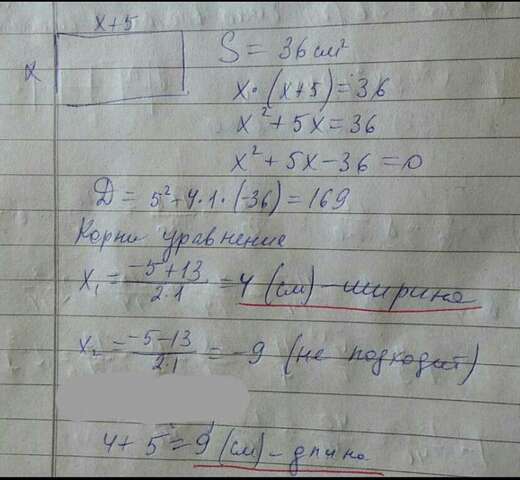 x+5
x
S = 36 см²
x·(x+5)=36
x²+5x=36
x²+5x-36=0
D = 5²-4·1·(-36)=169
Корни уравнение
x₁ = (-5+13)/(2·1) = 4 (см) - ширина
x₂ = (-5-13)/(2·1) = -9 (не подходит)
4+5=9 (см) - длина